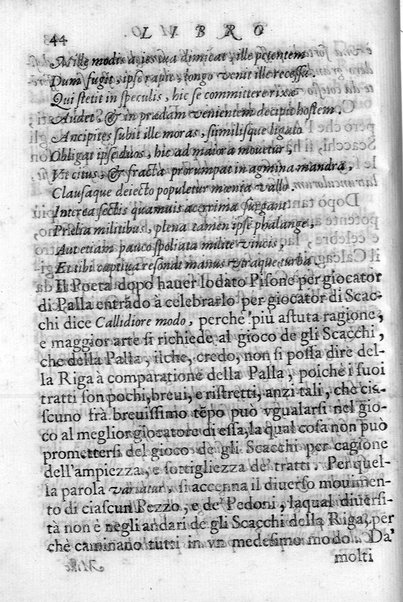 44 LIBRO
Mille modis acies tua dimicat, ille petentem
Dum fugit, ipse rapit, longo venit ille recessu
Qui stetit in speculis, hic se committere rixæ
Audet, & in prædam venientem decipit hostem,
Ancipites subit ille moras, similisque ligato
Obligat ipse duos, hic ad maiora mouetur,
Vt citus, & fracta prorumpat in agmina mandra,
Clausaque deiecto populetur mœnia vallo,
Interea sectis quamuis acerrima surgant
Prælia militibus, plena tamen ipse phalange,
Aut etiam pauco spoliata milite vincis,
Et tibi captiua resonat manus vtraque turba.
Il Poeta dopo hauer lodato Pisone per giocator
di Palla entrado à celebrarlo per giocator di Scac-
chi dice Callidiore modo, perche più astuta ragione,
e maggior arte si richiede al gioco de gli Scacchi,
che della Palla, ilche, credo, non si possa dire del-
la Riga à comparatione della Palla, poiche i suoi
tratti son pochi, breui, e ristretti, anzi tali, che cia-
scuno frà breuissimo tẽpo può vgualarsi nel gio-
co al meglior giocatore di essa, la qual cosa non può
promettersi del gioco de gli Scacchi per cagione
dell'ampiezza, e sottigliezza de' tratti. Per quel-
la parola variatur, si accenna il diuerso mouimen-
to di ciascun Pezzo, e de' Pedoni, laqual diuersi-
tà non è negli andari de gli Scacchi della Riga, per
chè caminano tutti in vn medesimo modo. Da'
molti